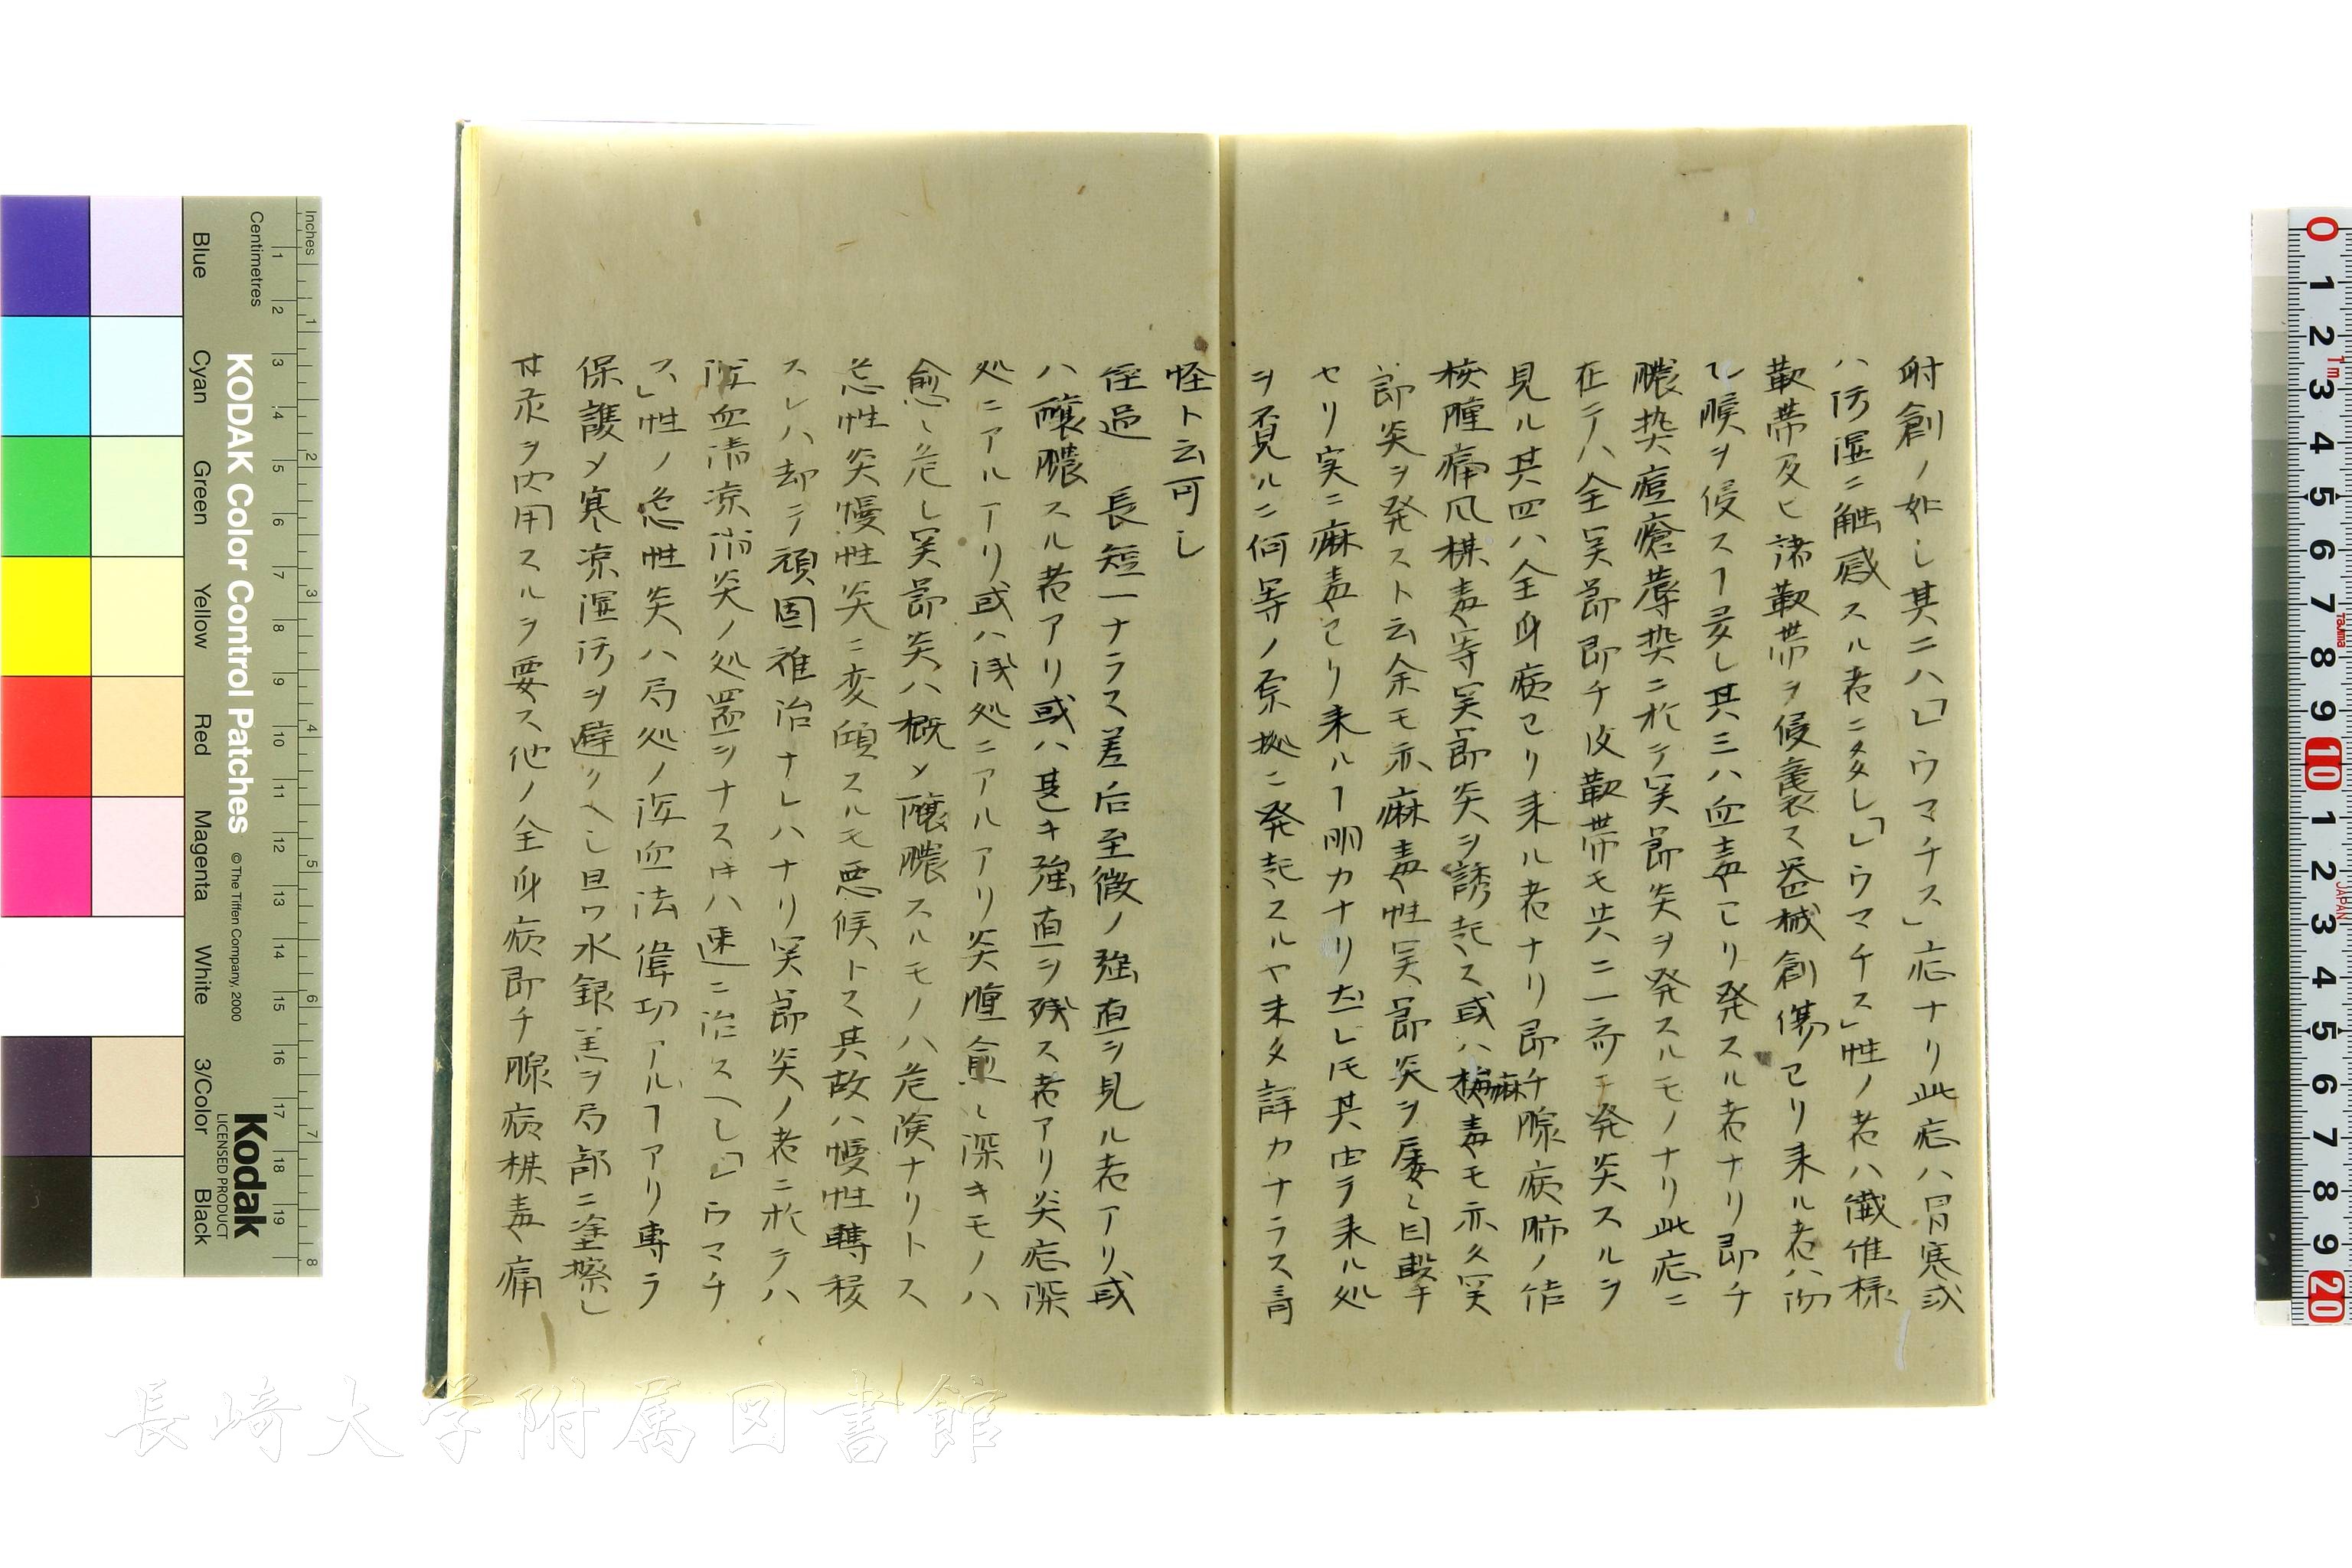 射創ノ如し其二ハ「レウマチス」症ナリ此症ハ冒寒或
ハ汚湿ニ触感スル者ニ多し「レウマチス」性ノ者ハ繊維様
靭帯及ヒ諸靭帯ヲ侵襲ス器械創傷ヨリ来ル者ハ
膜ヲ侵スヿ多し其三ハ血毒ヨリ発スル者ナリ即チ
膿染痘瘡蓐染ニ於テ関節炎ヲ発スルモノナリ此症ニ
在テハ全関節即チ皮靭帯モ共ニ一斉ニ発炎スルヲ
見ル其四ハ全身病ヨリ来ル者ナリ即チ腺病肺ノ結
核腫痛風楳毒等関節炎ヲ誘起ス或ハ麻毒モ亦久関
節炎ヲ発スト云余モ亦麻毒性関節炎ヲ屡々目撃
セリ実ニ麻毒ヨリ来ルヿ明カナリ𪜈其由テ来ル処
ヲ不見ルニ何等ノ原拠ニ発起スルヤ未タ詳カナラス
怪ト云可し
径過 長短一ナラス差后至微ノ強直ヲ見ル者アリ或
ハ醸膿スル者アリ或ハ甚キ強直ヲ残ス者アリ炎症深
処ニアルアリ或ハ浅処ニアルアリ炎腫愈々深キモノハ
愈々危し関節炎ハ概メ醸膿スルモノハ危険ナリトス
急性炎慢性炎ニ変傾スルモ悪候トス其故ハ慢性轉移
スレハ却テ頑固難治ナレハナリ関節炎ノ者ニ於テハ
瀉血清涼消炎ノ処置ヲナス𬼀ハ速ニ治スヘし「レウマチ
ス」性ノ急性炎ハ局処ノ瀉血法偉功アルヿアリ専ラ
保護メ寒涼湿汚ヲ避クヘし且ツ水銀羔ヲ局部ニ塗擦し
甘汞ヲ内用スルヲ要ス他ノ全身病即チ腺病楳毒痛
Inches
Centimetres
KODAK Color Control Patches
© The Tiffen Company, 2000
Blue
Cyan
Green
Yellow
Red
Magenta
White
3/Color
Black
Kodak
LICENSED PRODUCT
長崎大学附属図書館